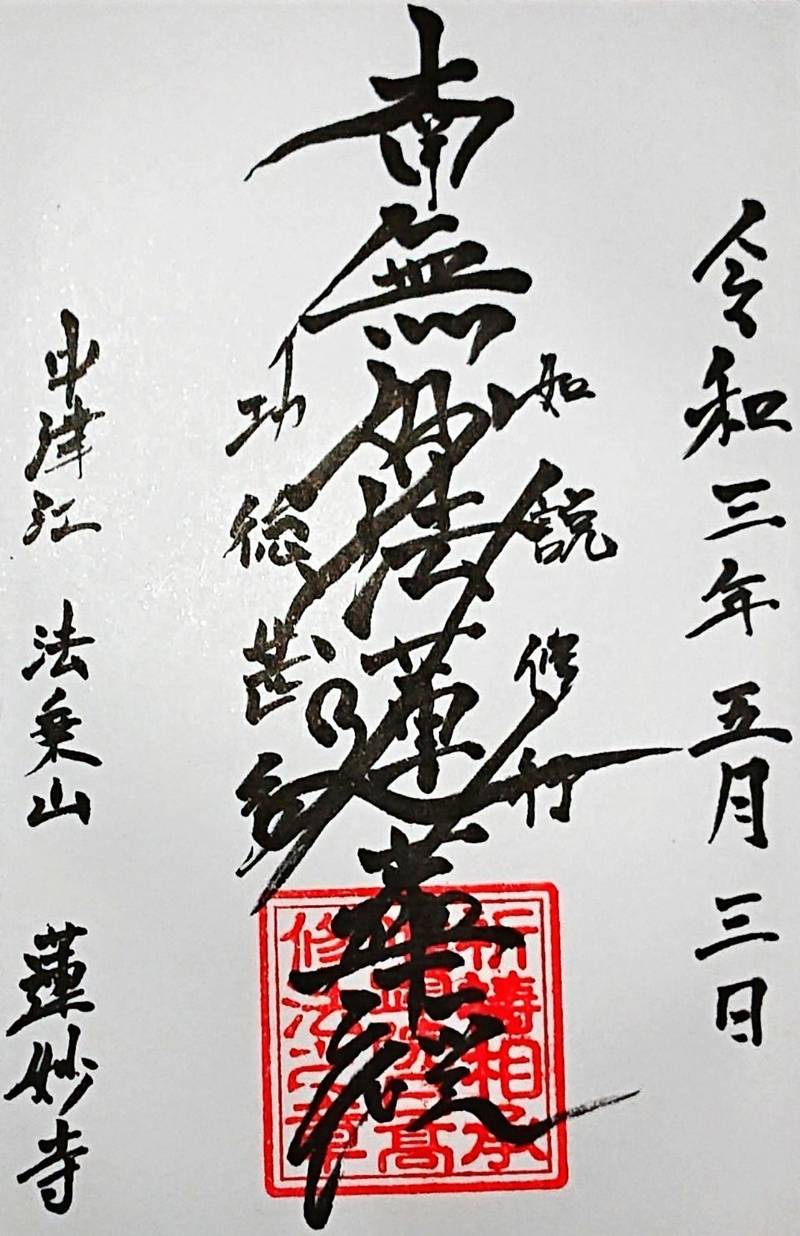 令和三年五月三日
如説修行
南無妙法蓮華経
功徳甚多
中津江 法乗山 蓮妙寺
祈祷相承
修法之章